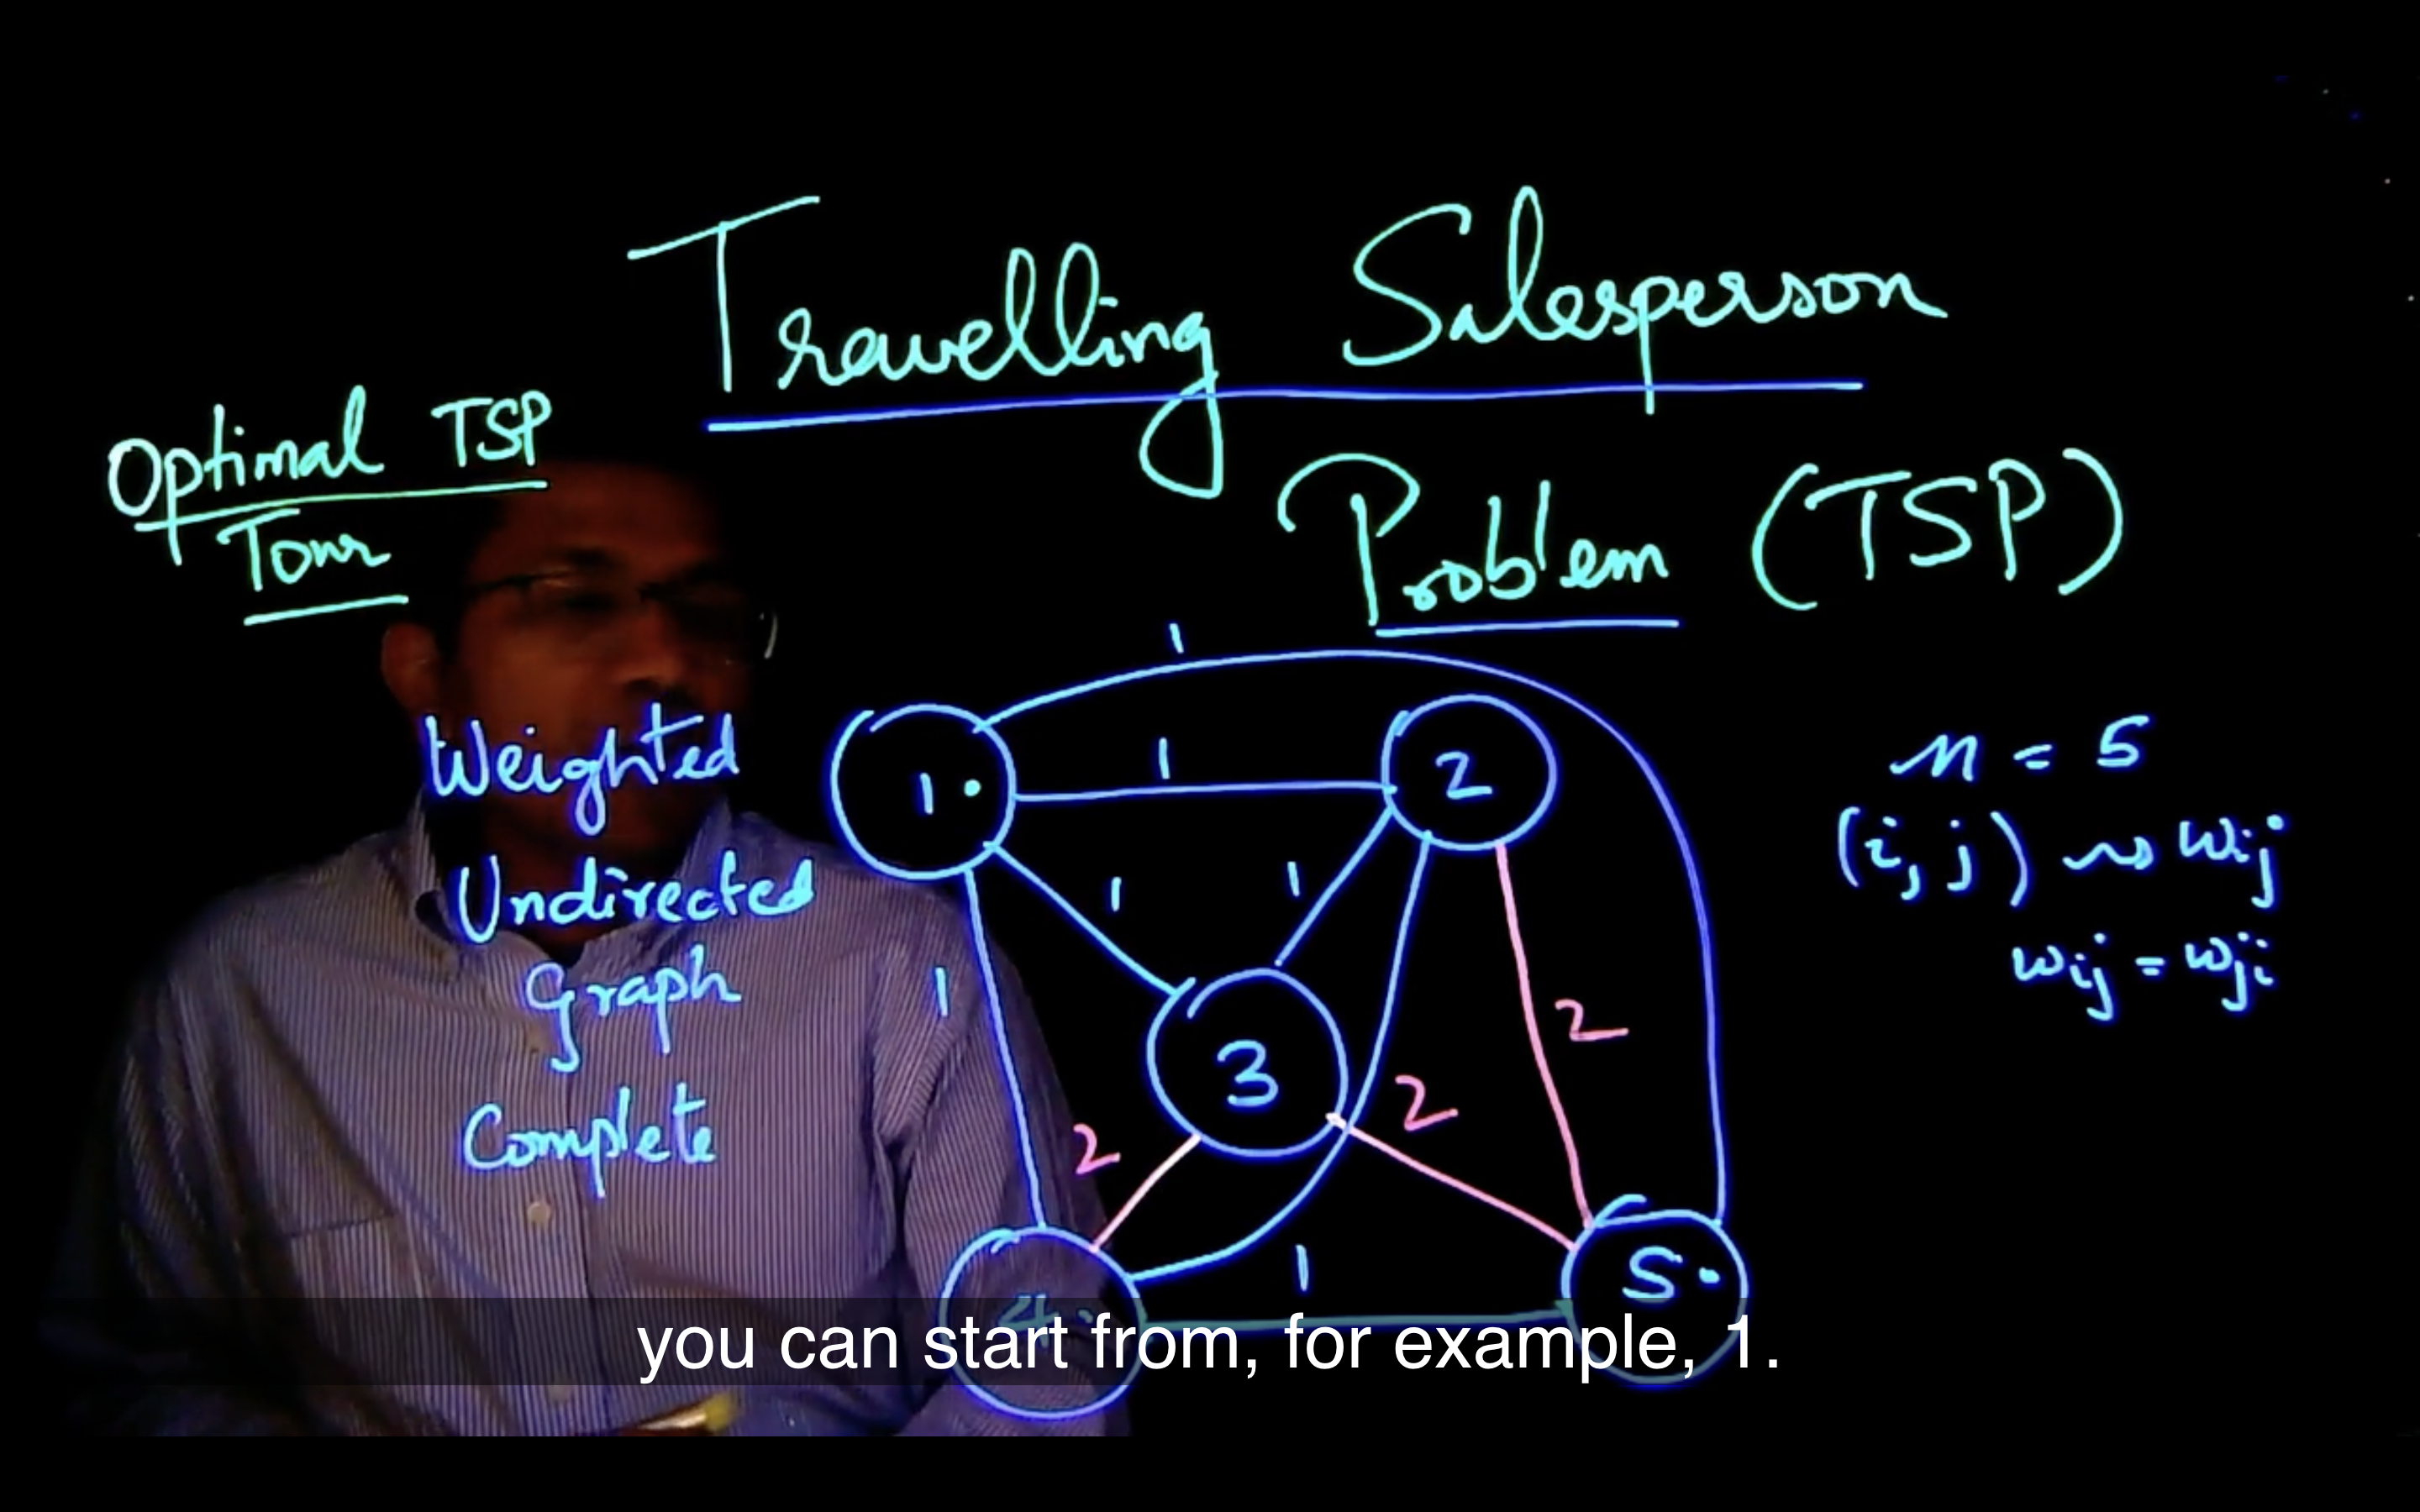 Travelling Salesperson
Problem (TSP)
Optimal TSP
Tour
Weighted
Undirected
Graph
Complete
1
1
1
1
1
2
2
2
1
1
2
3
4
5
n = 5
(i, j) ~> wij
wij = wji
you can start from, for example, 1.